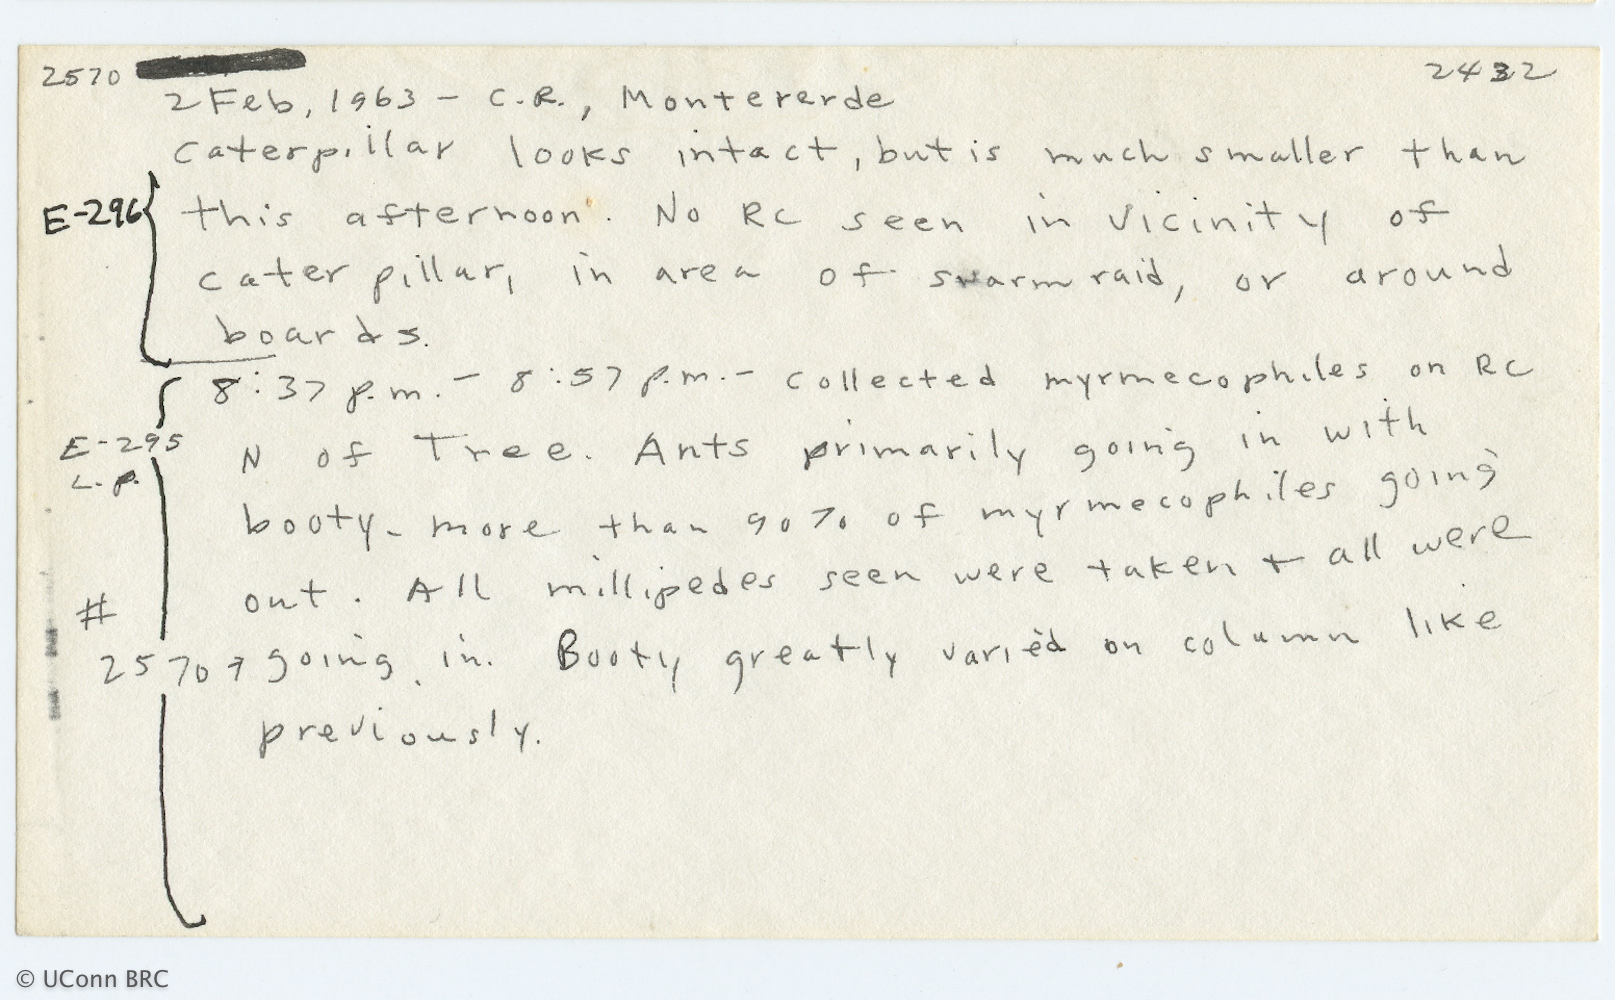 2570
2432
2 Feb, 1963 - C.R., Monteverde
Caterpillar looks intact, but is much smaller than
E-296
this afternoon. No RC seen in vicinity of
caterpillar, in area of swarm raid, or around
boards.
8:37 p.m. - 8:57 p.m. - collected myrmecophiles on RC
E-295
L.P.
N of Tree. Ants primarily going in with
booty - more than 90% of myrmecophiles going
out. All millipedes seen were taken + all were
#
2570 → going in. Booty greatly varied on column like
previously.
© UConn BRC